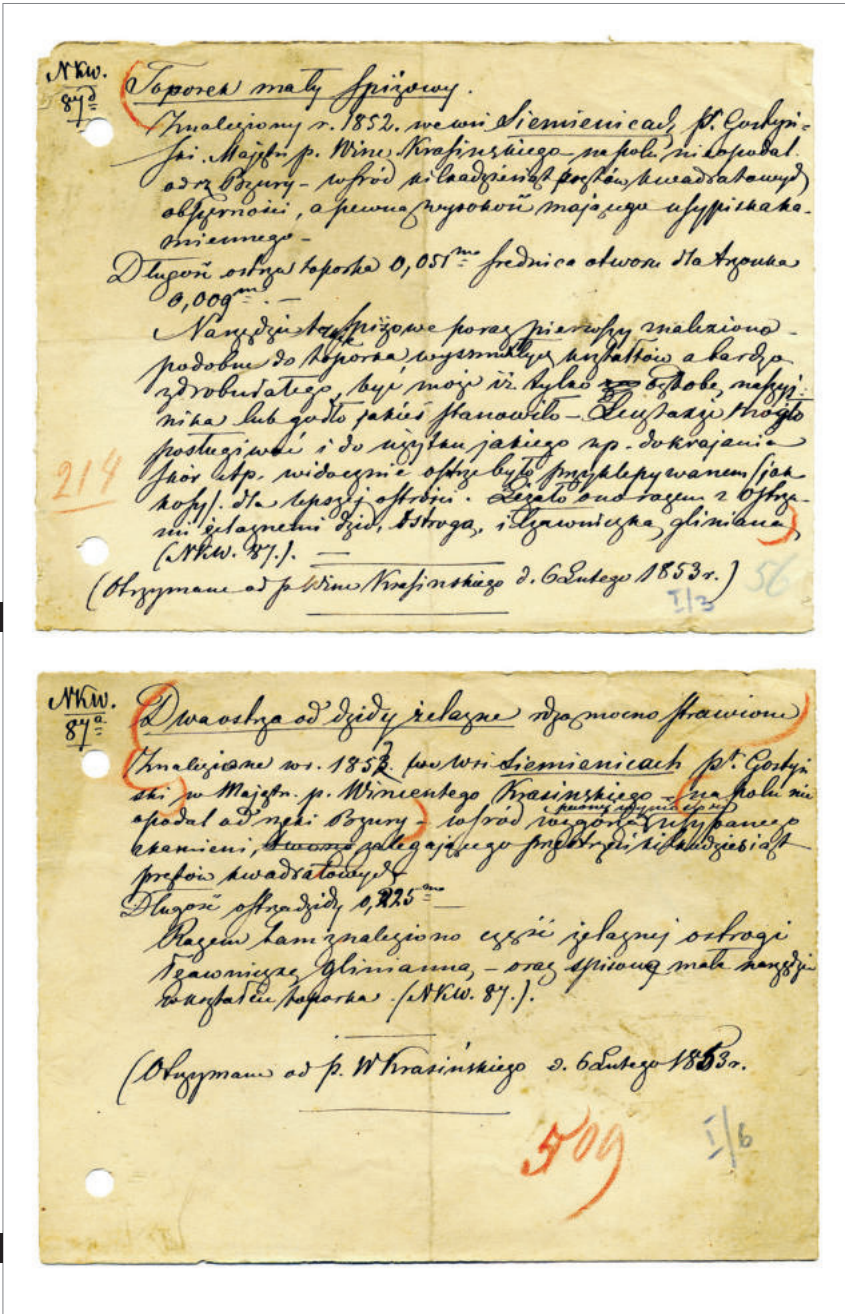 NKw.
87d
Toporek mały spiżowy.
Znaleziony r. 1852. we wsi Siemienicach, pt. Gostyń-
ski. Majętn. p. Winc. Krasińskiego – na polu nieopodal
od rz Bzury – wśród kilkadziesiąt prętów kwadratowych
obszerności, a pewną wysokość mającego usypiska ka-
miennego –
Długość ostrza toporka 0,051 mo średnica otworu dla trzonka
0,009 m. –
Narzędzie to spiżowe poraz pierwszy znalezione
podobne do toporka wysmukłych kształtów a bardzo
zdrobniałego, być może iż tylko ozdobę naszyj-
nika lub godło jakieś stanowiło – Lecz także mogło
posługiwać i do użytku jakiego np. do krajania
skór itp. widocznie ostrze było przyklepywanem (jak
kosy). dla lepszej ostrości. Leżało ono razem z ostrza-
mi żelaznemi dzid, ostrogą, i łzawniczką glinianą
(NKW. 87.). –
(Otrzymane od p. Winc Krasińskiego d. 6 Lutego 1853 r.)
214
56
I/3
NKW.
87a
Dwa ostrza od dzidy żelazne rdzą mocno strawione
Znalezione w r. 1852 we wsi Siemienicach pt. Gostyń-
ski w Majętn. p. Wincentego Krasińskiego – na polu nie
opodal od rzeki Bzury – wśród wzgórza usypanego
z kamieni, zalegającego przestrzeń kilkadziesiąt
prętów kwadratowych
Długość ostrza dzidy 0,225 mo –
Razem tam znaleziono część żelaznej ostrogi
łzawniczkę glinianną, – oraz spiżowe małe narzędzie
w kształcie toporka. (NKW. 87.).
(Otrzymane od p. W Krasińskiego d. 6 Lutego 1853 r.
509
I/6